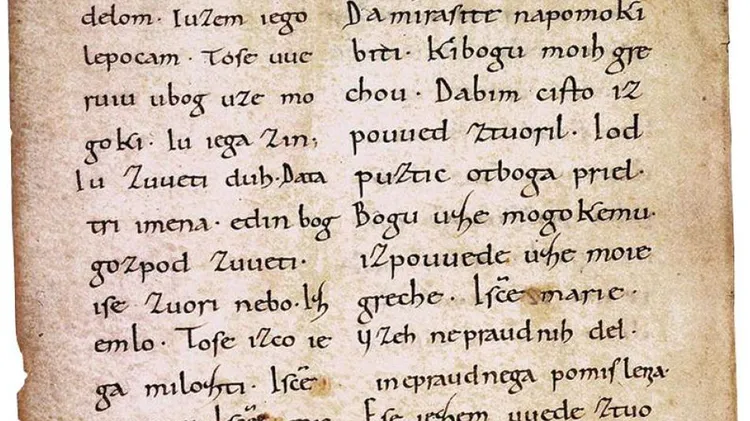 delom · Iuzem iego
lepocam · Toſe uue
ruiu ubog uze mo
goki · Iu iega zin,
Iu zuueti duh · Data
tri imena · edin bog
gozpod zuueti ·
iſe zuori nebo · Iſh
emlo · Toſe izco ie
ga miloſhti · Iſce͞
Damiraſite napomoki
biti · Kibogu moih gre
chou · Dabim ciſto iz
pouued ztuoril · Iod
puztic otboga priel ·
Bogu uſhe mogokemu ·
izpouuede uſhe moie
greche · Iſce͞ marie ·
Uzeh nepraudnih del ·
inepraudnega pomiſlena ·
Eſe ieſhem uuede ztuo